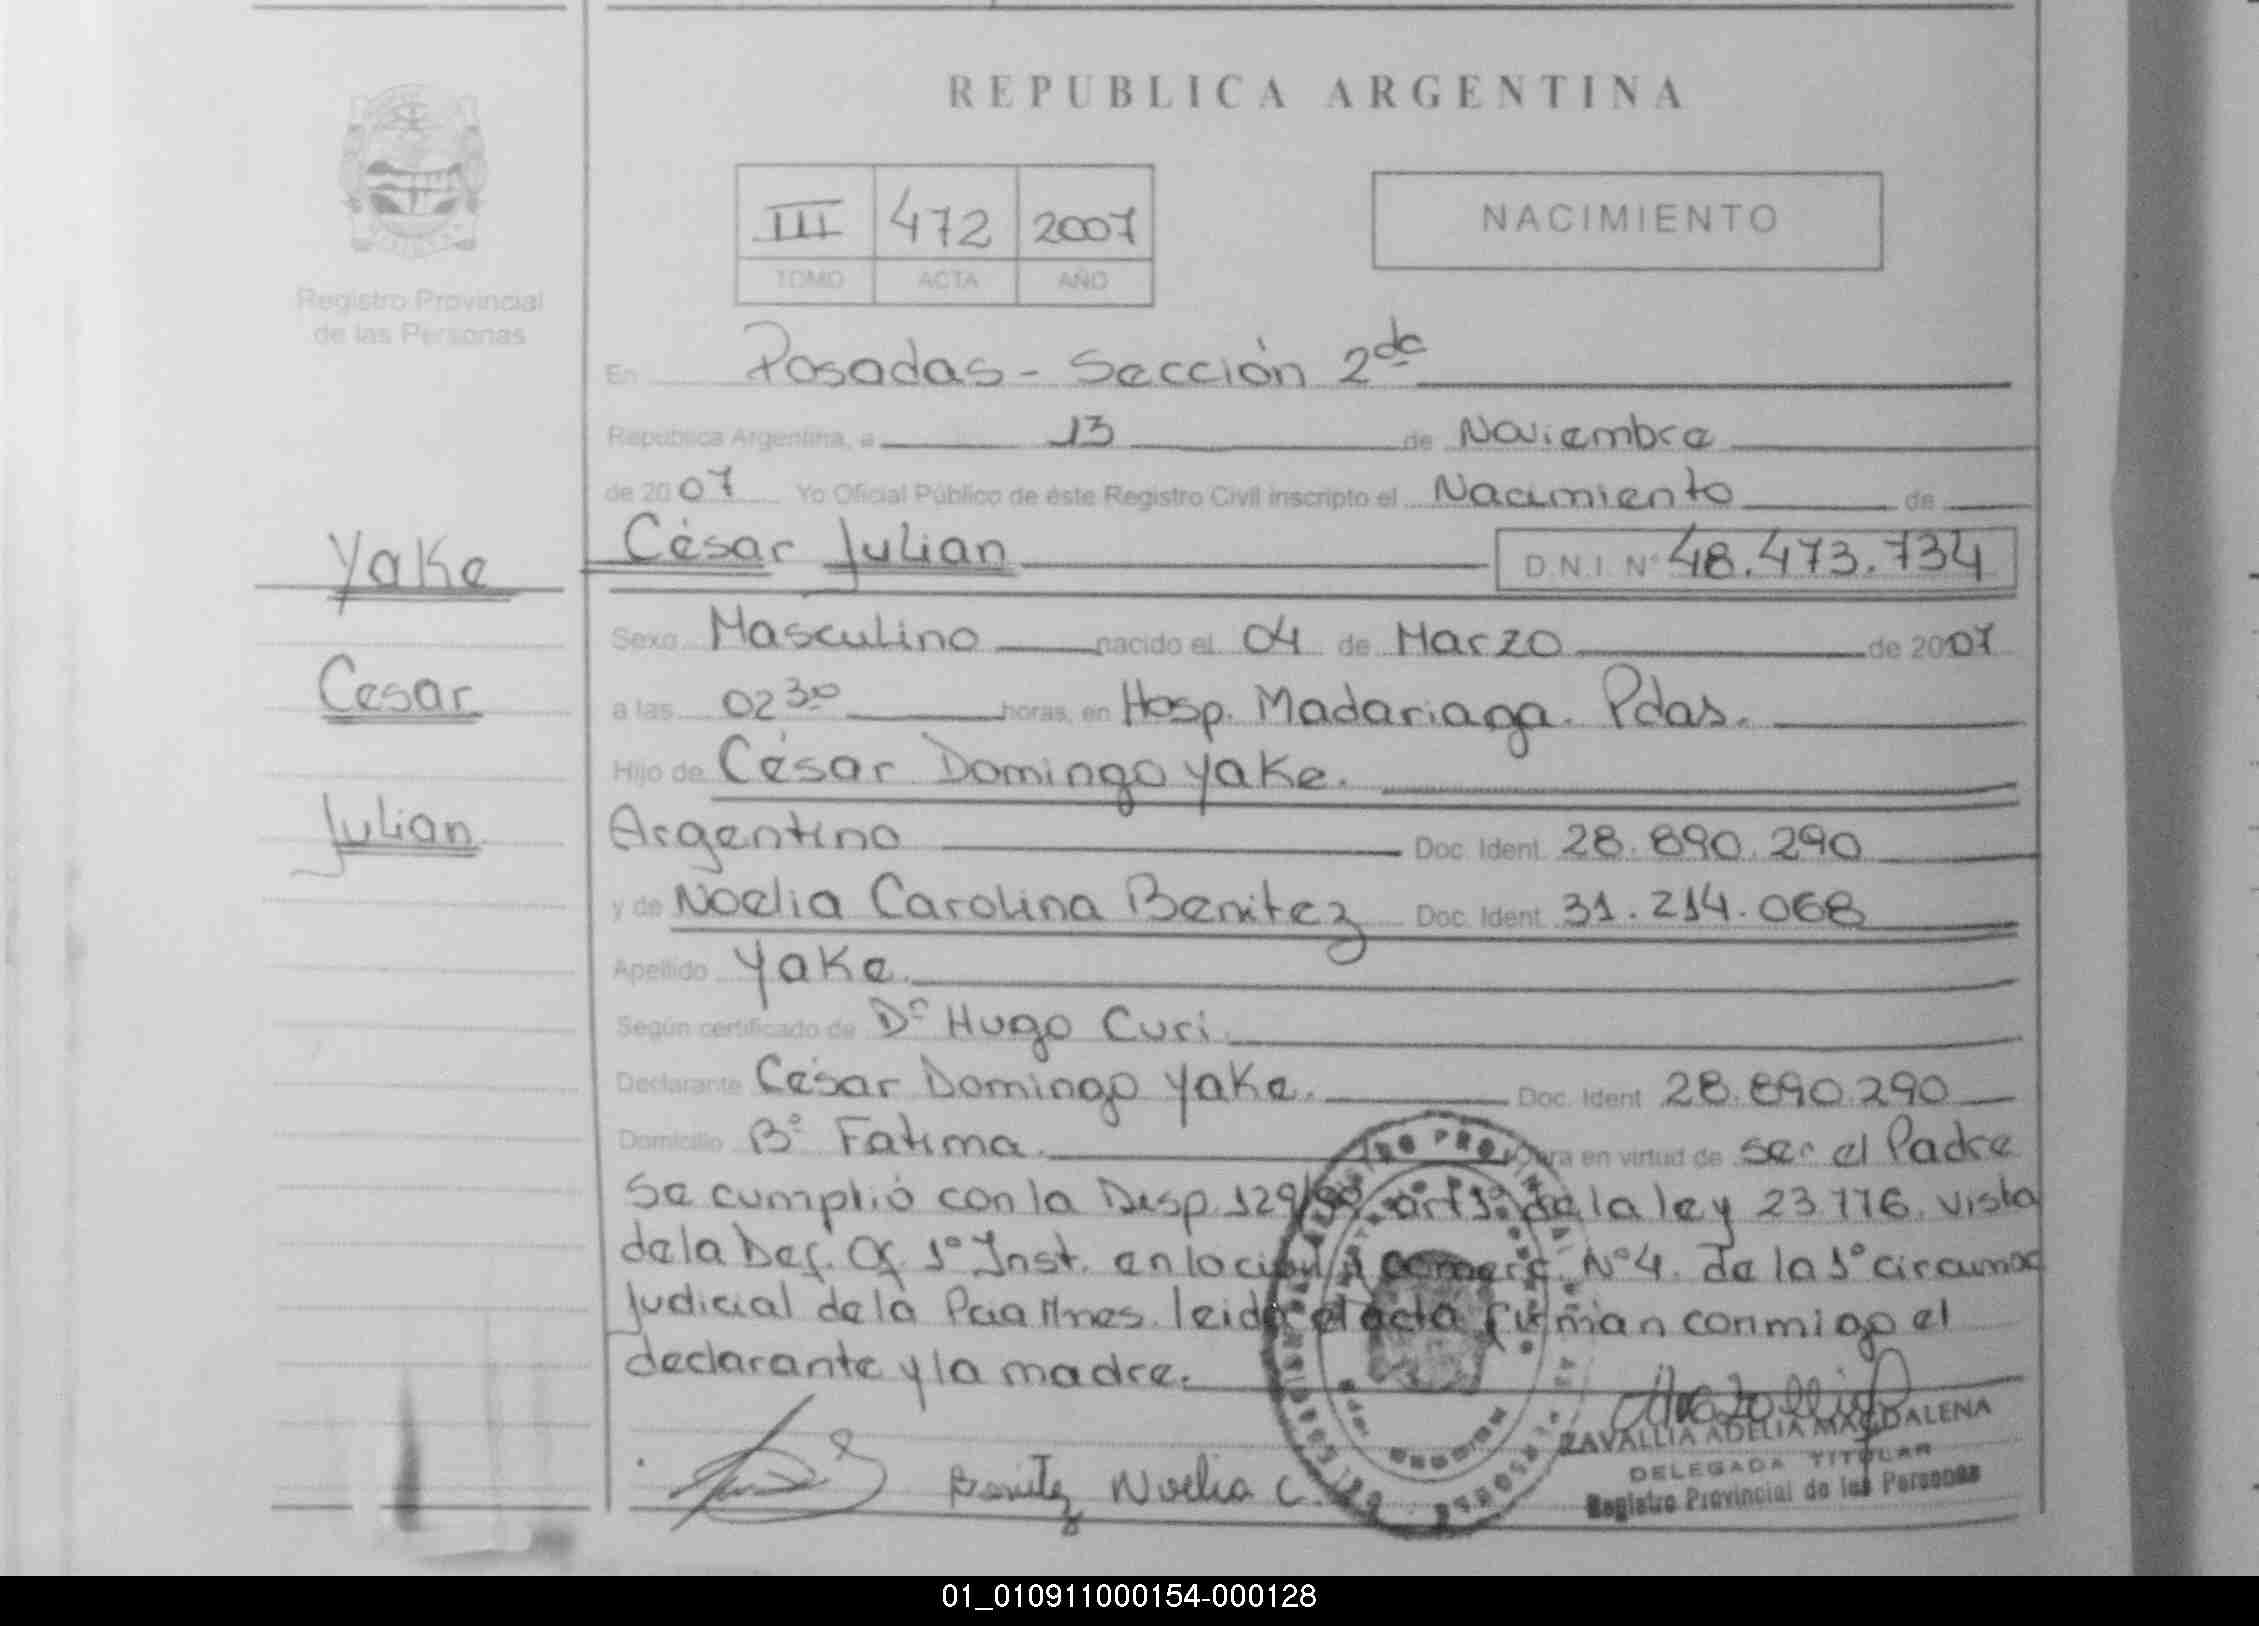 REPUBLICA ARGENTINA
III 472 2007
TOMO ACTA AÑO
NACIMIENTO
Registro Provincial
de las Personas
En Posadas - Sección 2da
República Argentina, a 13 de Noviembre
de 2007 Yo Oficial Público de éste Registro Civil inscripto el Nacimiento de
César Julian D.N.I. N° 48.473.734
Yake
Cesar
Julian
Sexo Masculino nacido el 04 de Marzo de 2007
a las 02 30 horas, en Hosp. Madariaga. Pdas.
Hijo de César Domingo Yake.
Argentino Doc. Ident. 28.890.290
y de Noelia Carolina Benitez Doc. Ident. 31.214.068
Apellido Yake.
Según certificado de Dr Hugo Curi
Declarante César Domingo Yake. Doc. Ident 28.890.290
Domicilio B° Fatima. en virtud de ser el Padre
Se cumplió con la Disp. 129/ art 1° de la ley 23.776. vista
de la Def. Of. 1° Inst. en lo civil y comerc. N° 4. de la 1° circunsc
judicial de la Pcia Mnes. leida el acta firman conmigo el
declarante y la madre.
Benitez Noelia C.
ZAVALLIA ADELIA MAGDALENA
DELEGADA TITULAR
Registro Provincial de las Personas
01_010911000154-000128